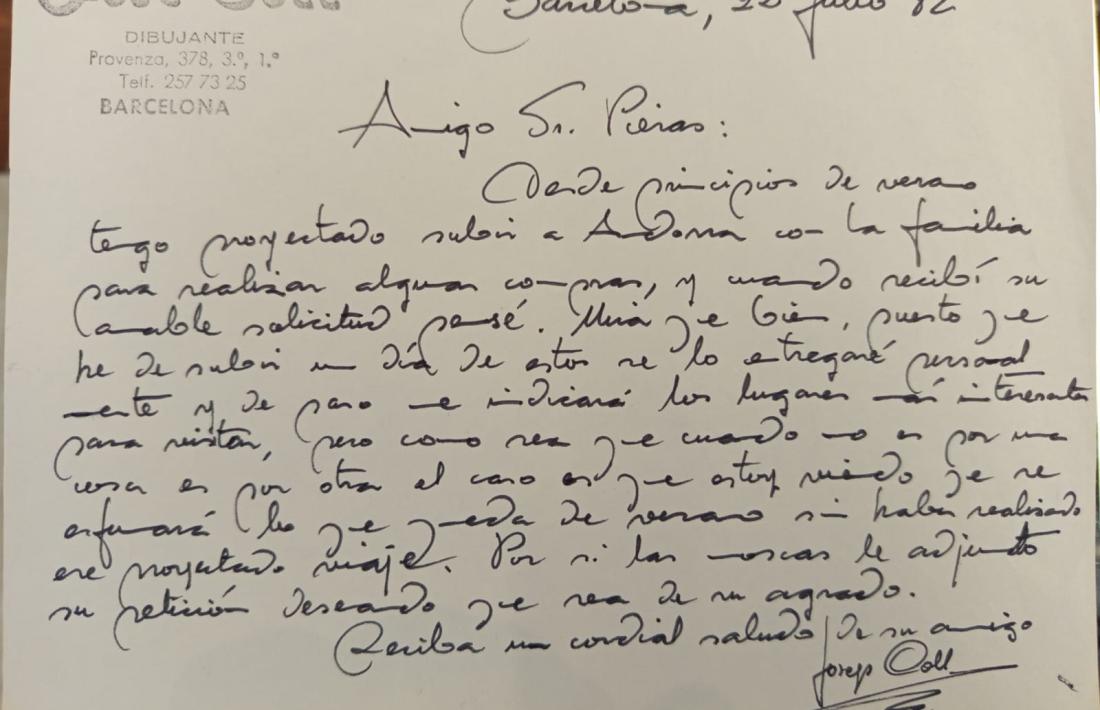 Barcelona, 20 julio 82
DIBUJANTE
Provenza, 378, 3.º, 1.ª
Telf. 257 73 25
BARCELONA
Amigo Sr. Pieras:
Desde principios de verano
tengo proyectado subir a Andorra con la familia
para realizar algunas compras, y cuando recibí su
amable solicitud pensé. Mira que bien, puesto que
he de subir un día de estos se lo entregaré personal
mente y de paso me indicará los lugares más interesantes
para visitar, pero como sea que cuando no es por una
cosa es por otra el caso es que estoy viendo que se
esfumará lo que queda de verano sin haber realizado
ese proyectado viaje. Por si las moscas le adjunto
su petición deseando que sea de su agrado.
Reciba un cordial saludo de su amigo
Josep Coll